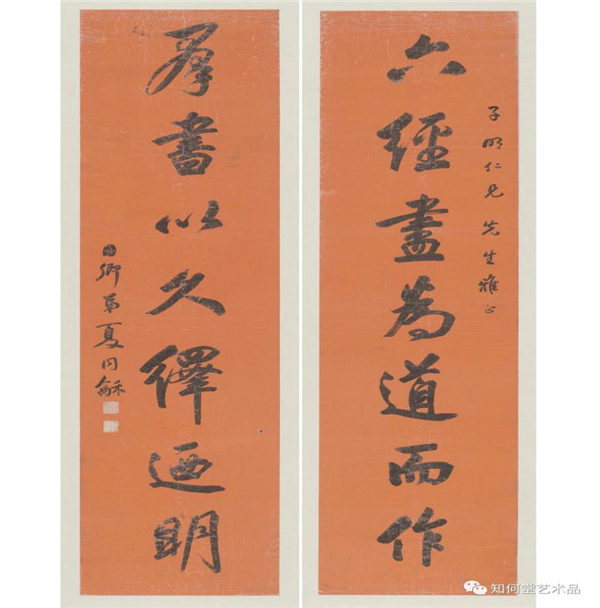 子明仁兄先生雅正
六經盡為道而作
羣書以久繹迺明
卿弟夏同龢
知何堂艺术品